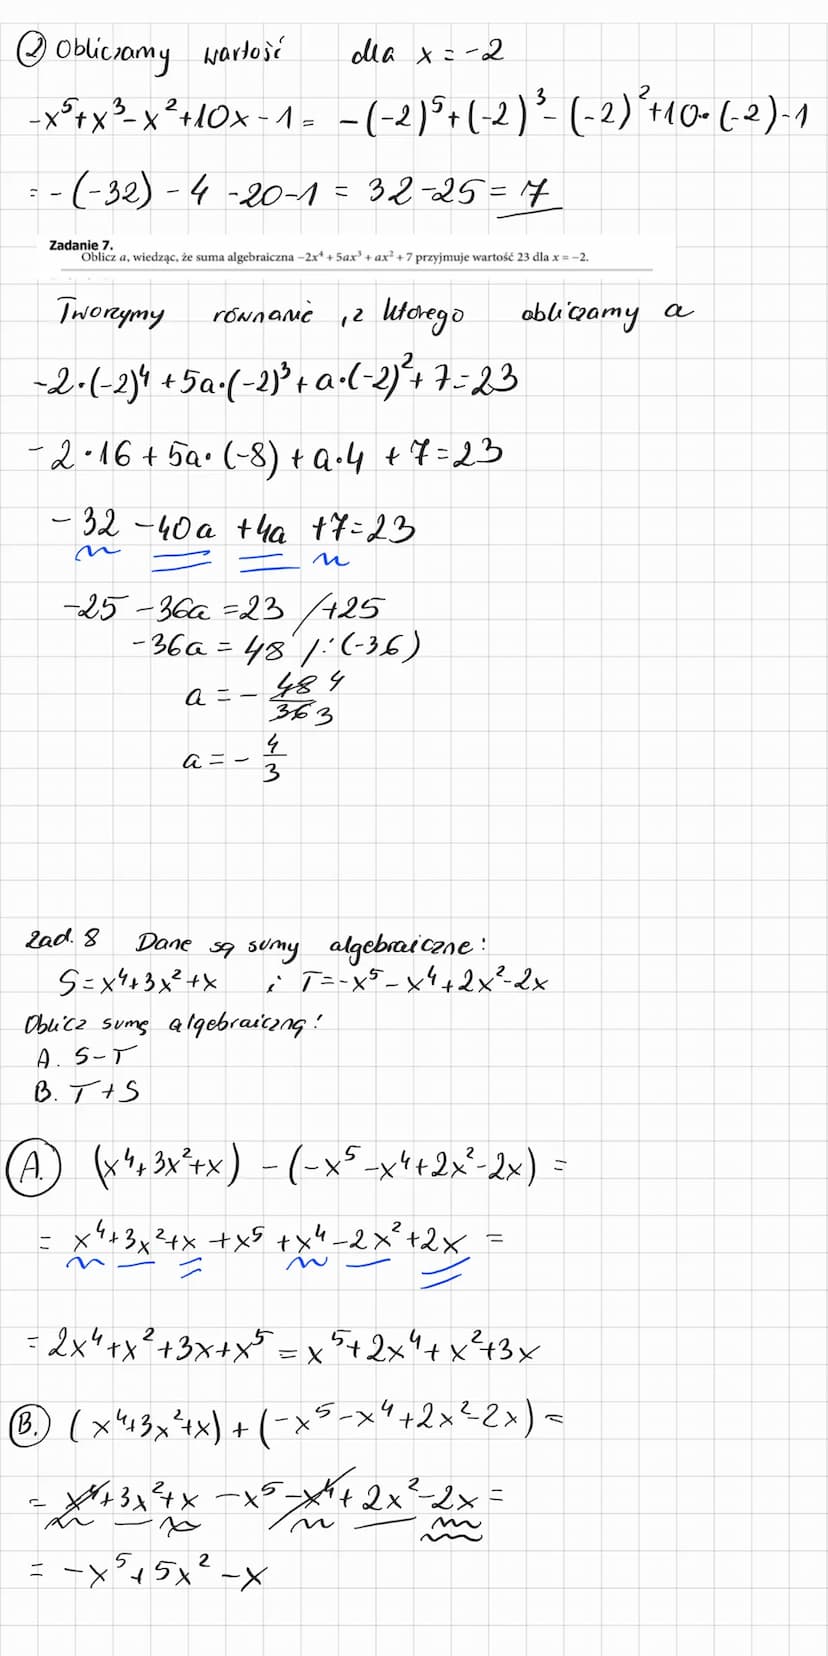 ② Obliczamy wartość dla x = -2
-x⁵+x³-x²+10x-1= -(-2)⁵+(-2)³-(-2)²+10·(-2)-1
= -(-32)-4-20-1 = 32-25=7
Zadanie 7.
Oblicz a, wiedząc, że suma algebraiczna −2x⁴ + 5ax³ + ax² + 7 przyjmuje wartość 23 dla x = −2.
Tworzymy równanie, z ktorego obliczamy a
-2·(-2)⁴+5a·(-2)³+a·(-2)²+7=23
-2·16+5a·(-8)+a·4+7=23
-32-40a+4a+7=23
-25-36a=23 /+25
-36a=48 /:(-36)
a=- 48 4
36 3
a=- 4/3
Zad. 8 Dane są sumy algebraiczne:
S=x⁴+3x²+x i T=-x⁵-x⁴+2x²-2x
Oblicz sumę algebraiczną:
A. S-T
B. T+S
Ⓐ. (x⁴+3x²+x)-(-x⁵-x⁴+2x²-2x)=
= x⁴+3x²+x+x⁵+x⁴-2x²+2x=
= 2x⁴+x²+3x+x⁵=x⁵+2x⁴+x²+3x
Ⓑ. (x⁴+3x²+x)+(-x⁵-x⁴+2x²-2x)=
= x⁴+3x²+x-x⁵-x⁴+2x²-2x=
= -x⁵+5x²-x